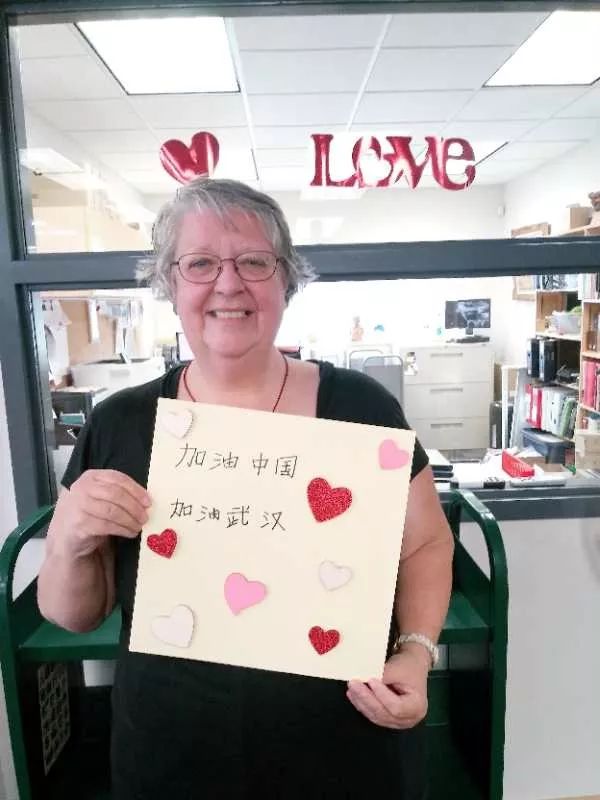 LOVe
加油中国
加油武汉